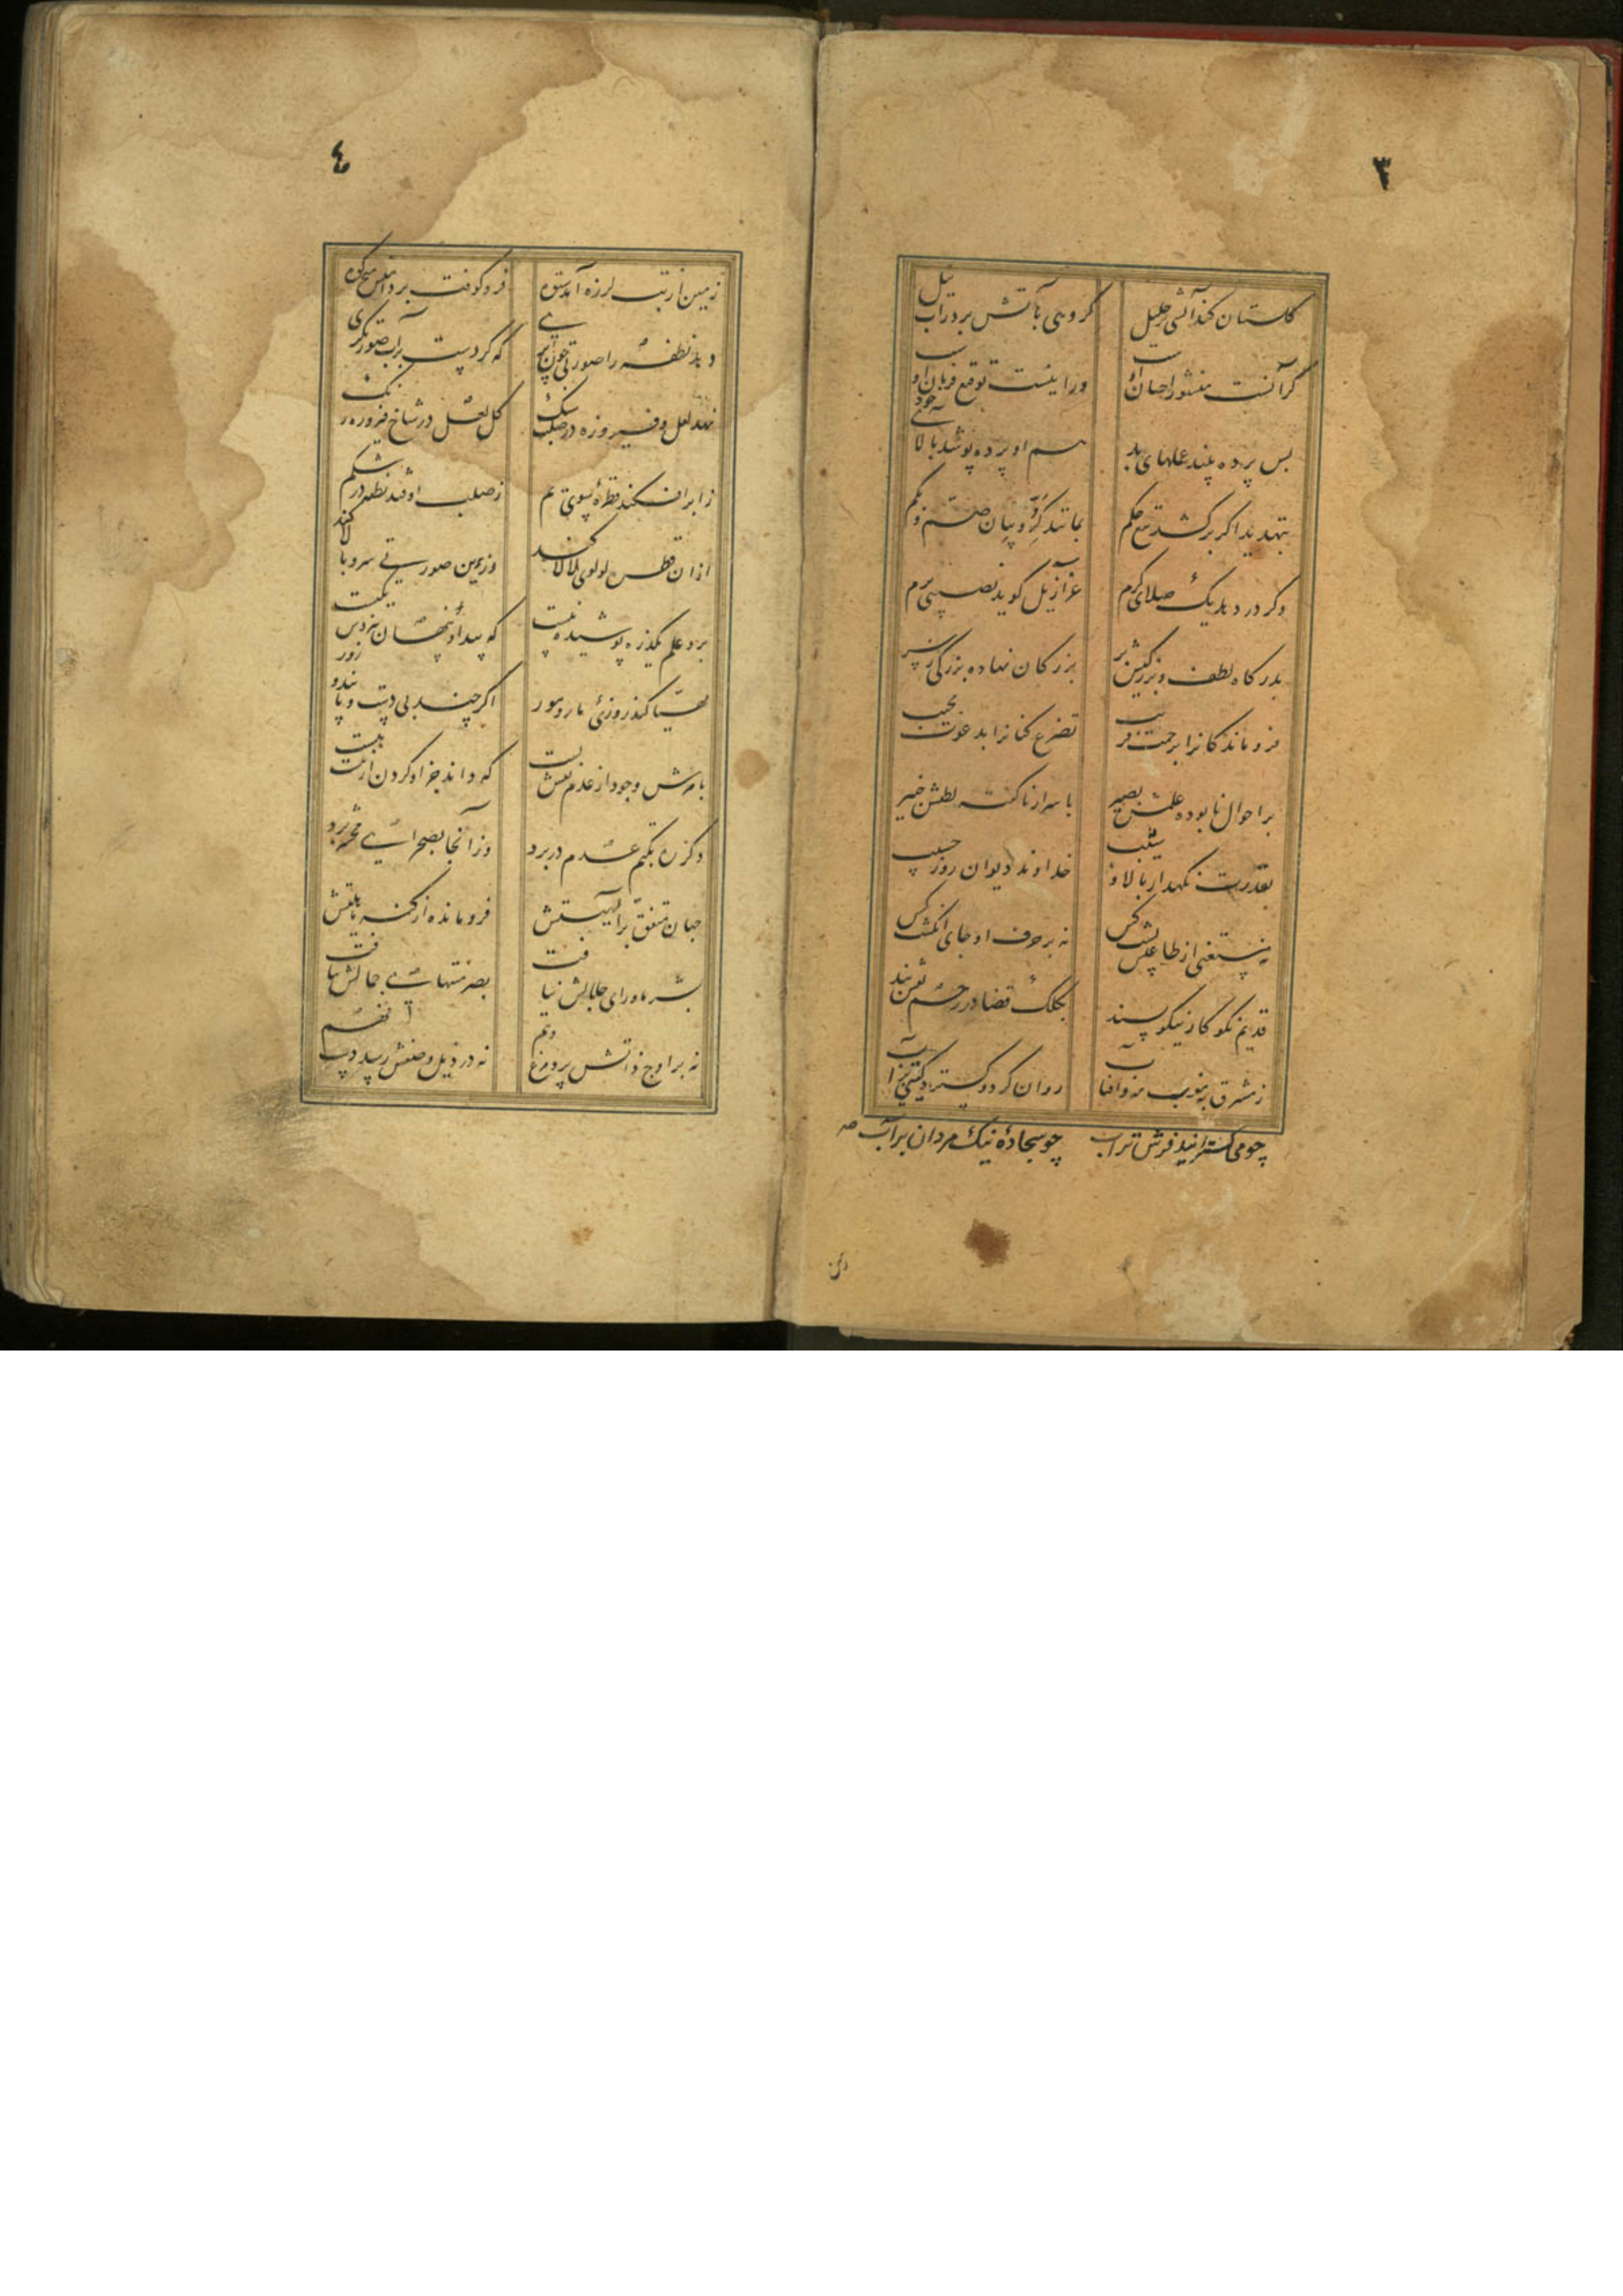 ٣
گلستان کند آتشی بر خلیل گروهی بآتش برد ز آب نیل
گر آنست منشور احسان اوست ور اینست توقیع فرمان اوست
پس پرده بیند عملهای بد هم او پرده پوشد بآلای خود
بتهدید اگر برکشد تیغ حکم بمانند کروبیان صم و بکم
وگر در دهد یک صلای کرم عزازیل گوید نصیبی برم
بدرگاه لطف و بزرگیش بر بزرگان نهاده بزرگی ز سر
فروماندگانرا برحمت قریب تضرع کنانرا بدعوت مجیب
بر احوال نابوده علمش بصیر باسرار ناگفته لطفش خبیر
بقدرت نگهدار بالا و شیب خداوند دیوان روز حسیب
نه مستغنی از طاعتش پشت کس نه بر حرف او جای انگشت کس
قدیم نکوکار نیکوپسند بکلک قضا در رحم نقش بند
ز مشرق به مغرب مه و آفتاب روان کرد و گسترد گیتی بر آب
چو می گسترانید فرش تراب چو سجادهٔ نیک مردان بر آب صه
زمین
٤
زمین از تب لرزه آمد ستوه فرو کوفت بر دامنش میخ کوه
دهد نطفه را صورتی چون پری که کردست بر آب صورتگری
نهد لعل و فیروزه در صلب سنگ گل لعل در شاخ فیروزه رنگ
ز ابر افکند قطرهٔ سوی یم ز صلب اوفتد نطفه در شکم
از آن قطره لولوی لالا کند وزین صورتی سرو بالا کند
برو علم یکذره پوشیده نیست که پیدا و پنهان بنزدش یکیست
مهیا کند روزی مار و مور اگر چند بی دست و پایند و زور
بامرش وجود از عدم نقش بست که داند جز او کردن از نیست هست
دگر ره بکتم عدم در برد وز آنجا بصحرای محشر برد
جهان متفق بر الهیتش فرومانده از کنه ماهیتش
بشر ماورای جلالش نیافت بصر منتهای جمالش نیافت
نه بر اوج ذاتش پرد مرغ وهم نه در ذیل وصفش رسد دست فهم